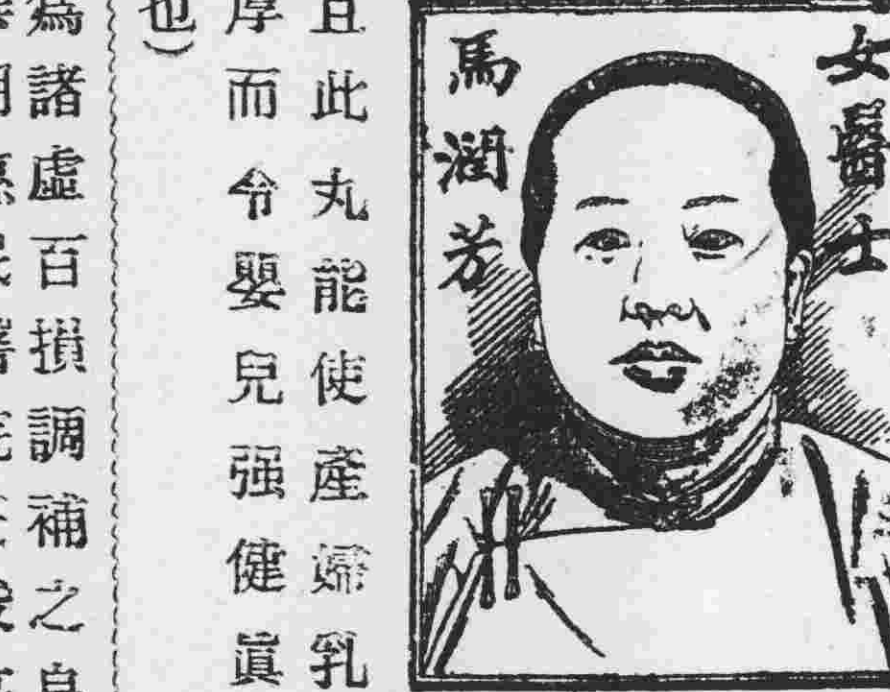 女醫士
馬潤芳
且此丸能使產婦乳
厚而令嬰兒强健眞
也）
為諸虛百損調補之良